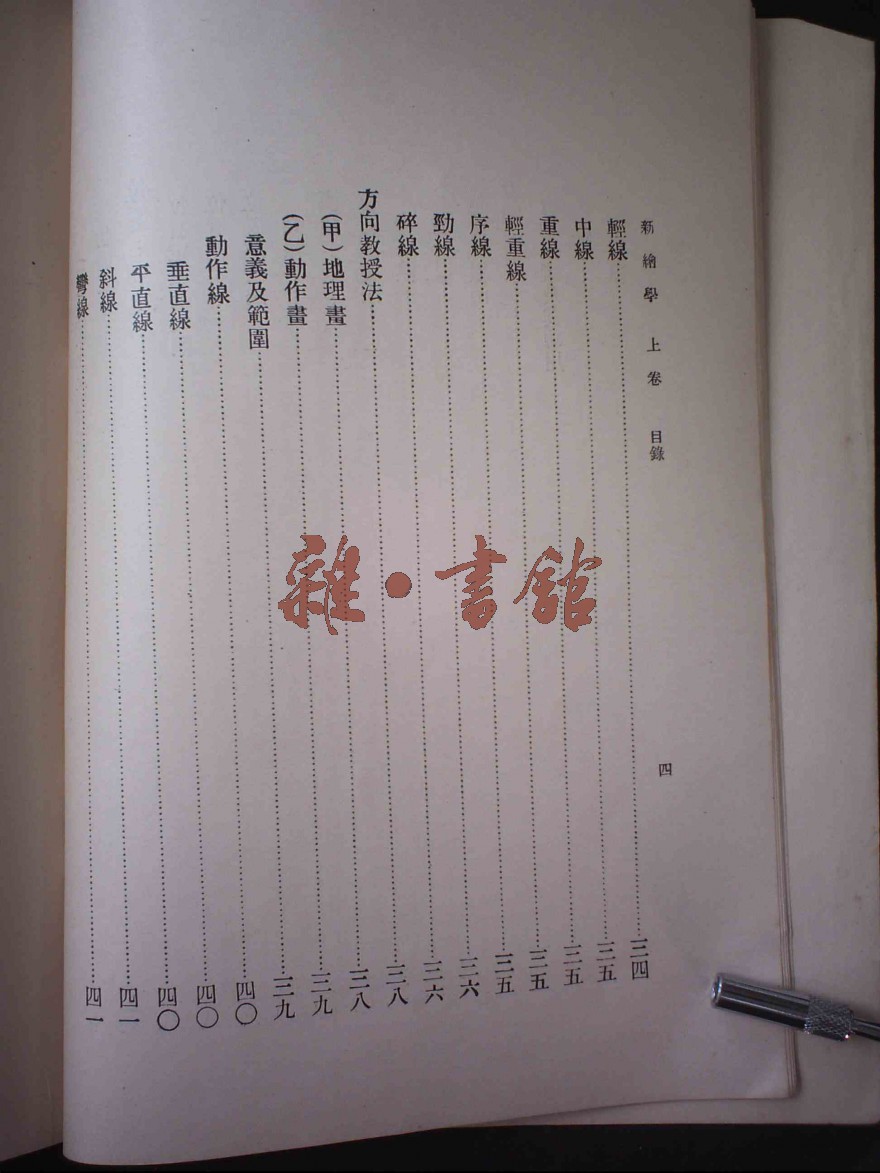 新繪學 上卷 目錄 四
輕線……三四
中線……三五
重線……三五
輕重線……三五
序線……三五
勁線……三六
碎線……三六
方向教授法……三八
(甲)地理畫……三八
(乙)動作畫……三九
意義及範圍……三九
動作線……四〇
垂直線……四〇
平直線……四〇
斜線……四一
彎線……四一
雜·書館